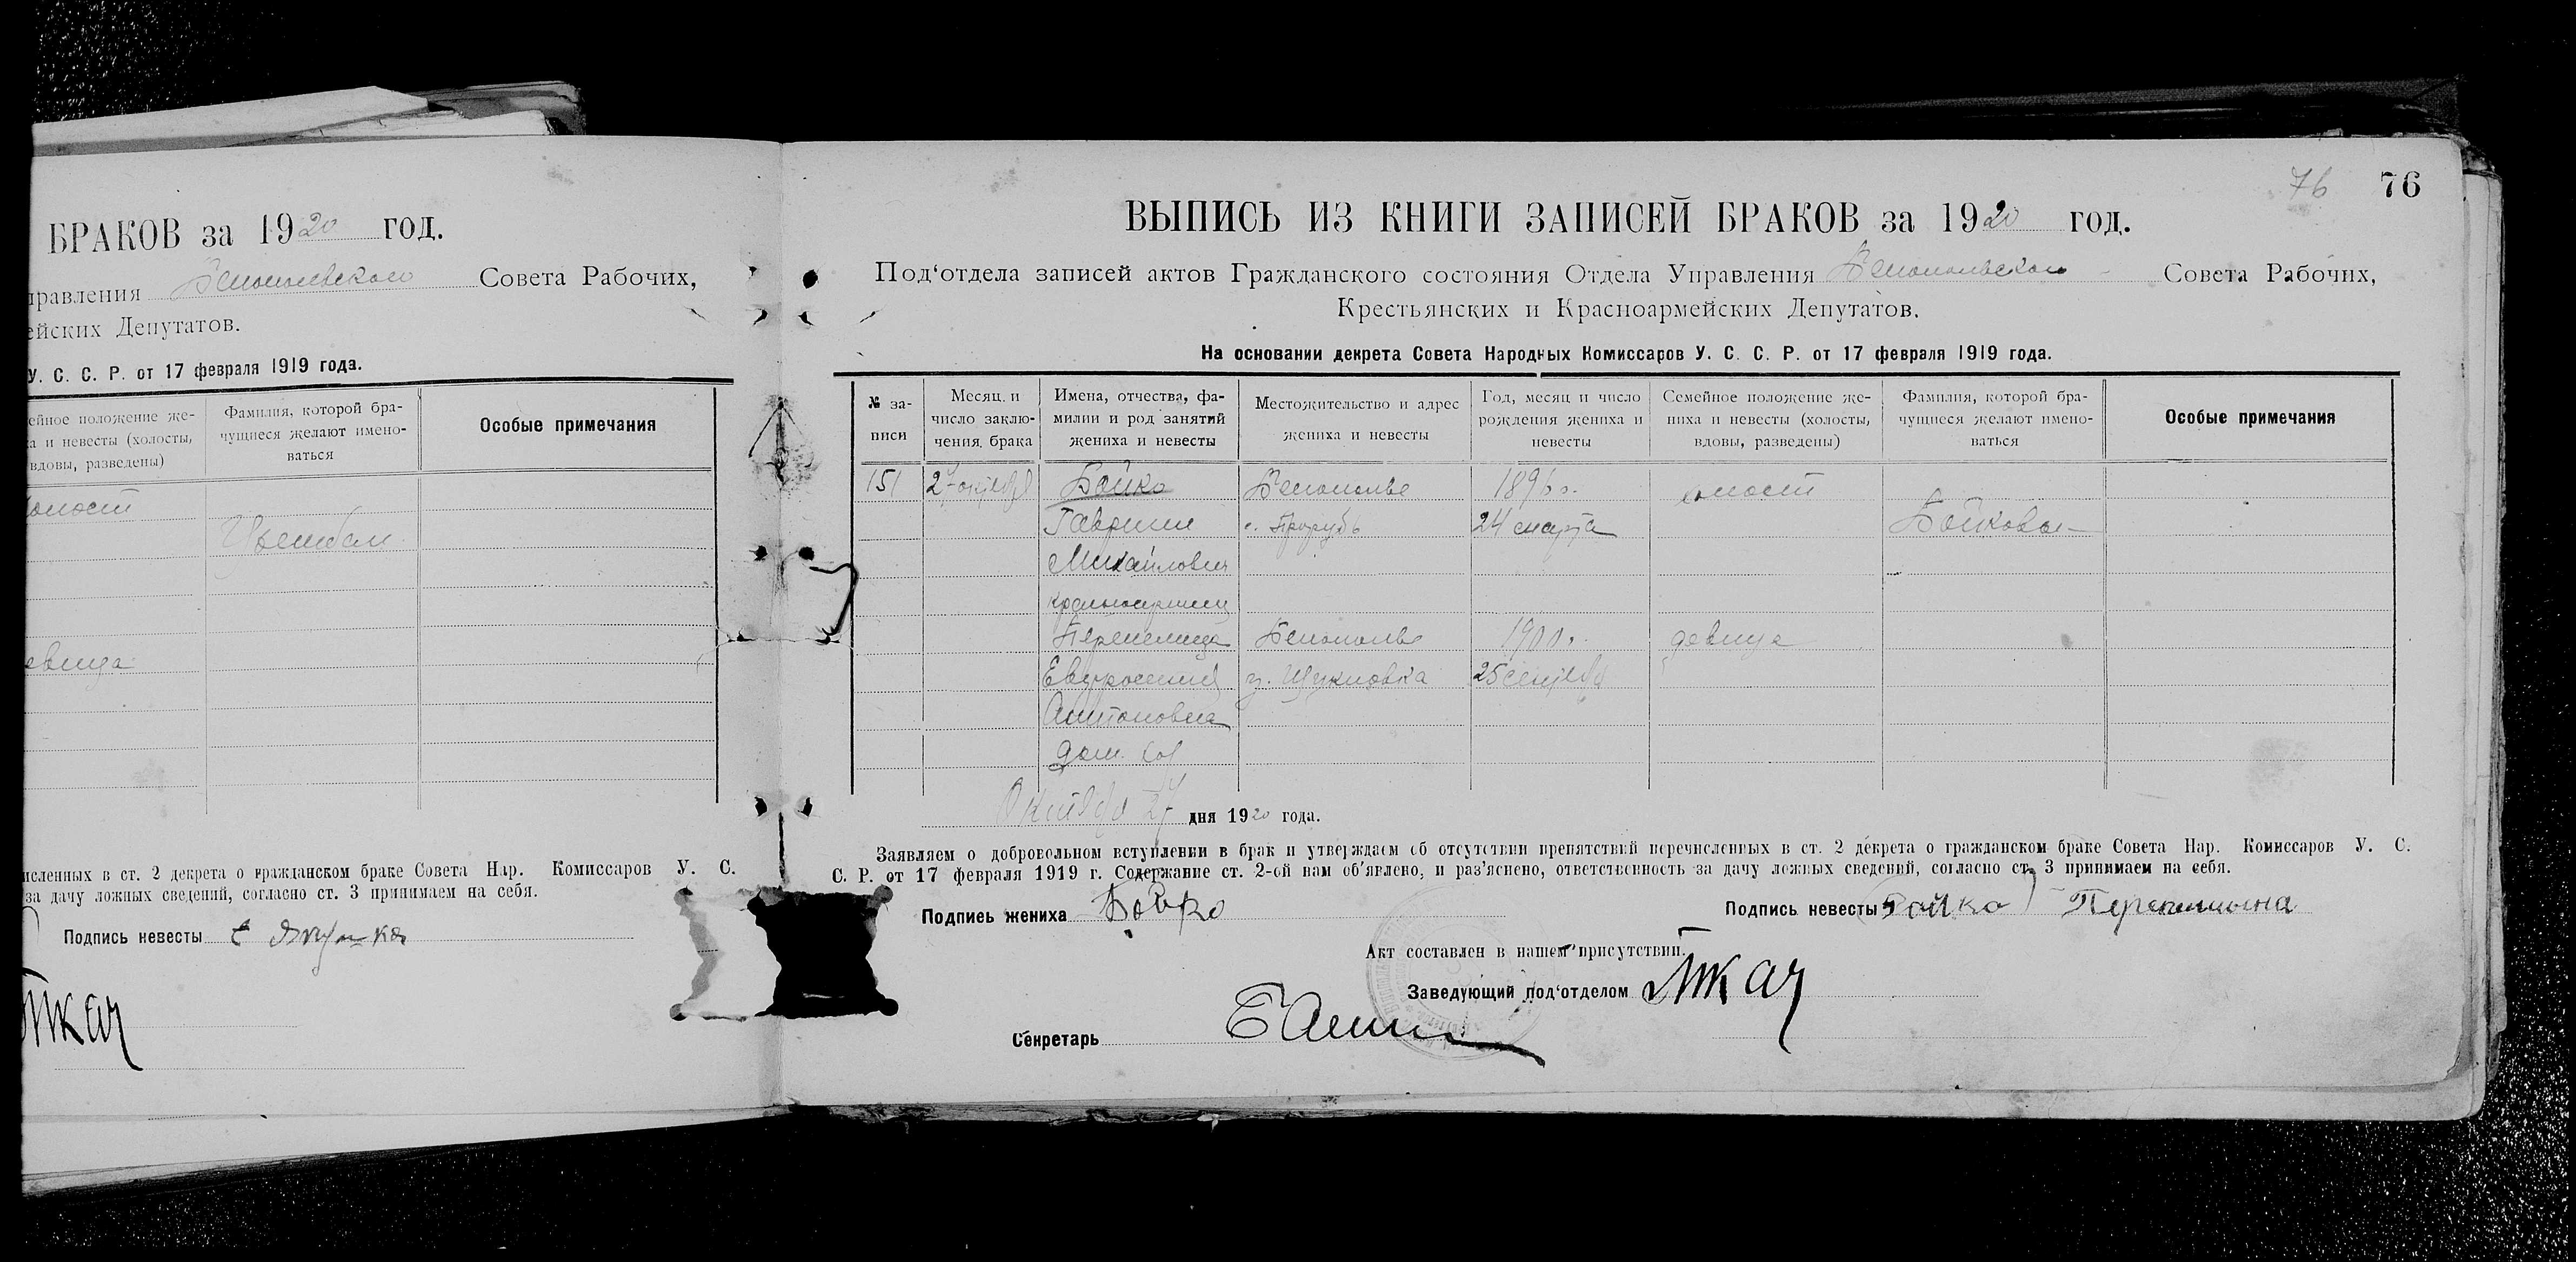 БРАКОВ за 1920 год.
Совета Рабочих,
ейских Депутатов.
У. С. С. Р. от 17 февраля 1919 года.
Фамилия, которой бра-
чущиеся желают имено-
ваться
Особые примечания
ейное положение же-
а и невесты (холосты,
вдовы, разведены)
евица
исленных в ст. 2 декрета о гражданском браке Совета Нар. Комиссаров У. С.
за дачу ложных сведений, согласно ст. 3 принимаем на себя.
Подпись невесты
Ткач
76 76
ВЫПИСЬ ИЗ КНИГИ ЗАПИСЕЙ БРАКОВ за 1920 год.
Под‘отдела записей актов Гражданского состояния Отдела Управления Белопольского Совета Рабочих,
Крестьянских и Красноармейских Депутатов.
На основании декрета Совета Народных Комиссаров У. С. С. Р. от 17 февраля 1919 года.
№ за-
писи
Месяц и
число заклю-
чения брака
Имена, отчества, фа-
милии и род занятий
жениха и невесты
Местожительство и адрес
жениха и невесты
Год, месяц и число
рождения жениха и
невесты
Семейное положение же-
ниха и невесты (холосты,
вдовы, разведены)
Фамилия, которой бра-
чущиеся желают имено-
ваться
Особые примечания
151 Бойко Белополье 1896 г. холост
Гавриил с. Прорубь 24 марта Бойковы
Михайлович
красноармеец
Перепелица Белополье 1900 г. девица
Евдросиния Щукновка 25
Антоновна
дом. хоз
Октября дня 1920 года.
Заявляем о добровольном вступлении в брак и утверждаем об отсутствии препятствий перечисленных в ст. 2 декрета о гражданском браке Совета Нар. Комиссаров У. С.
С. Р. от 17 февраля 1919 г. Содержание ст. 2-ой нам об‘явлено, и раз‘яснено, ответственность за дачу ложных сведений, согласно ст. 3 принимаем на себя.
Подпись жениха Бойко Подпись невесты Бойко
Акт составлен в нашем присутствии.
Заведующий под‘отделом Ткач
Секретарь